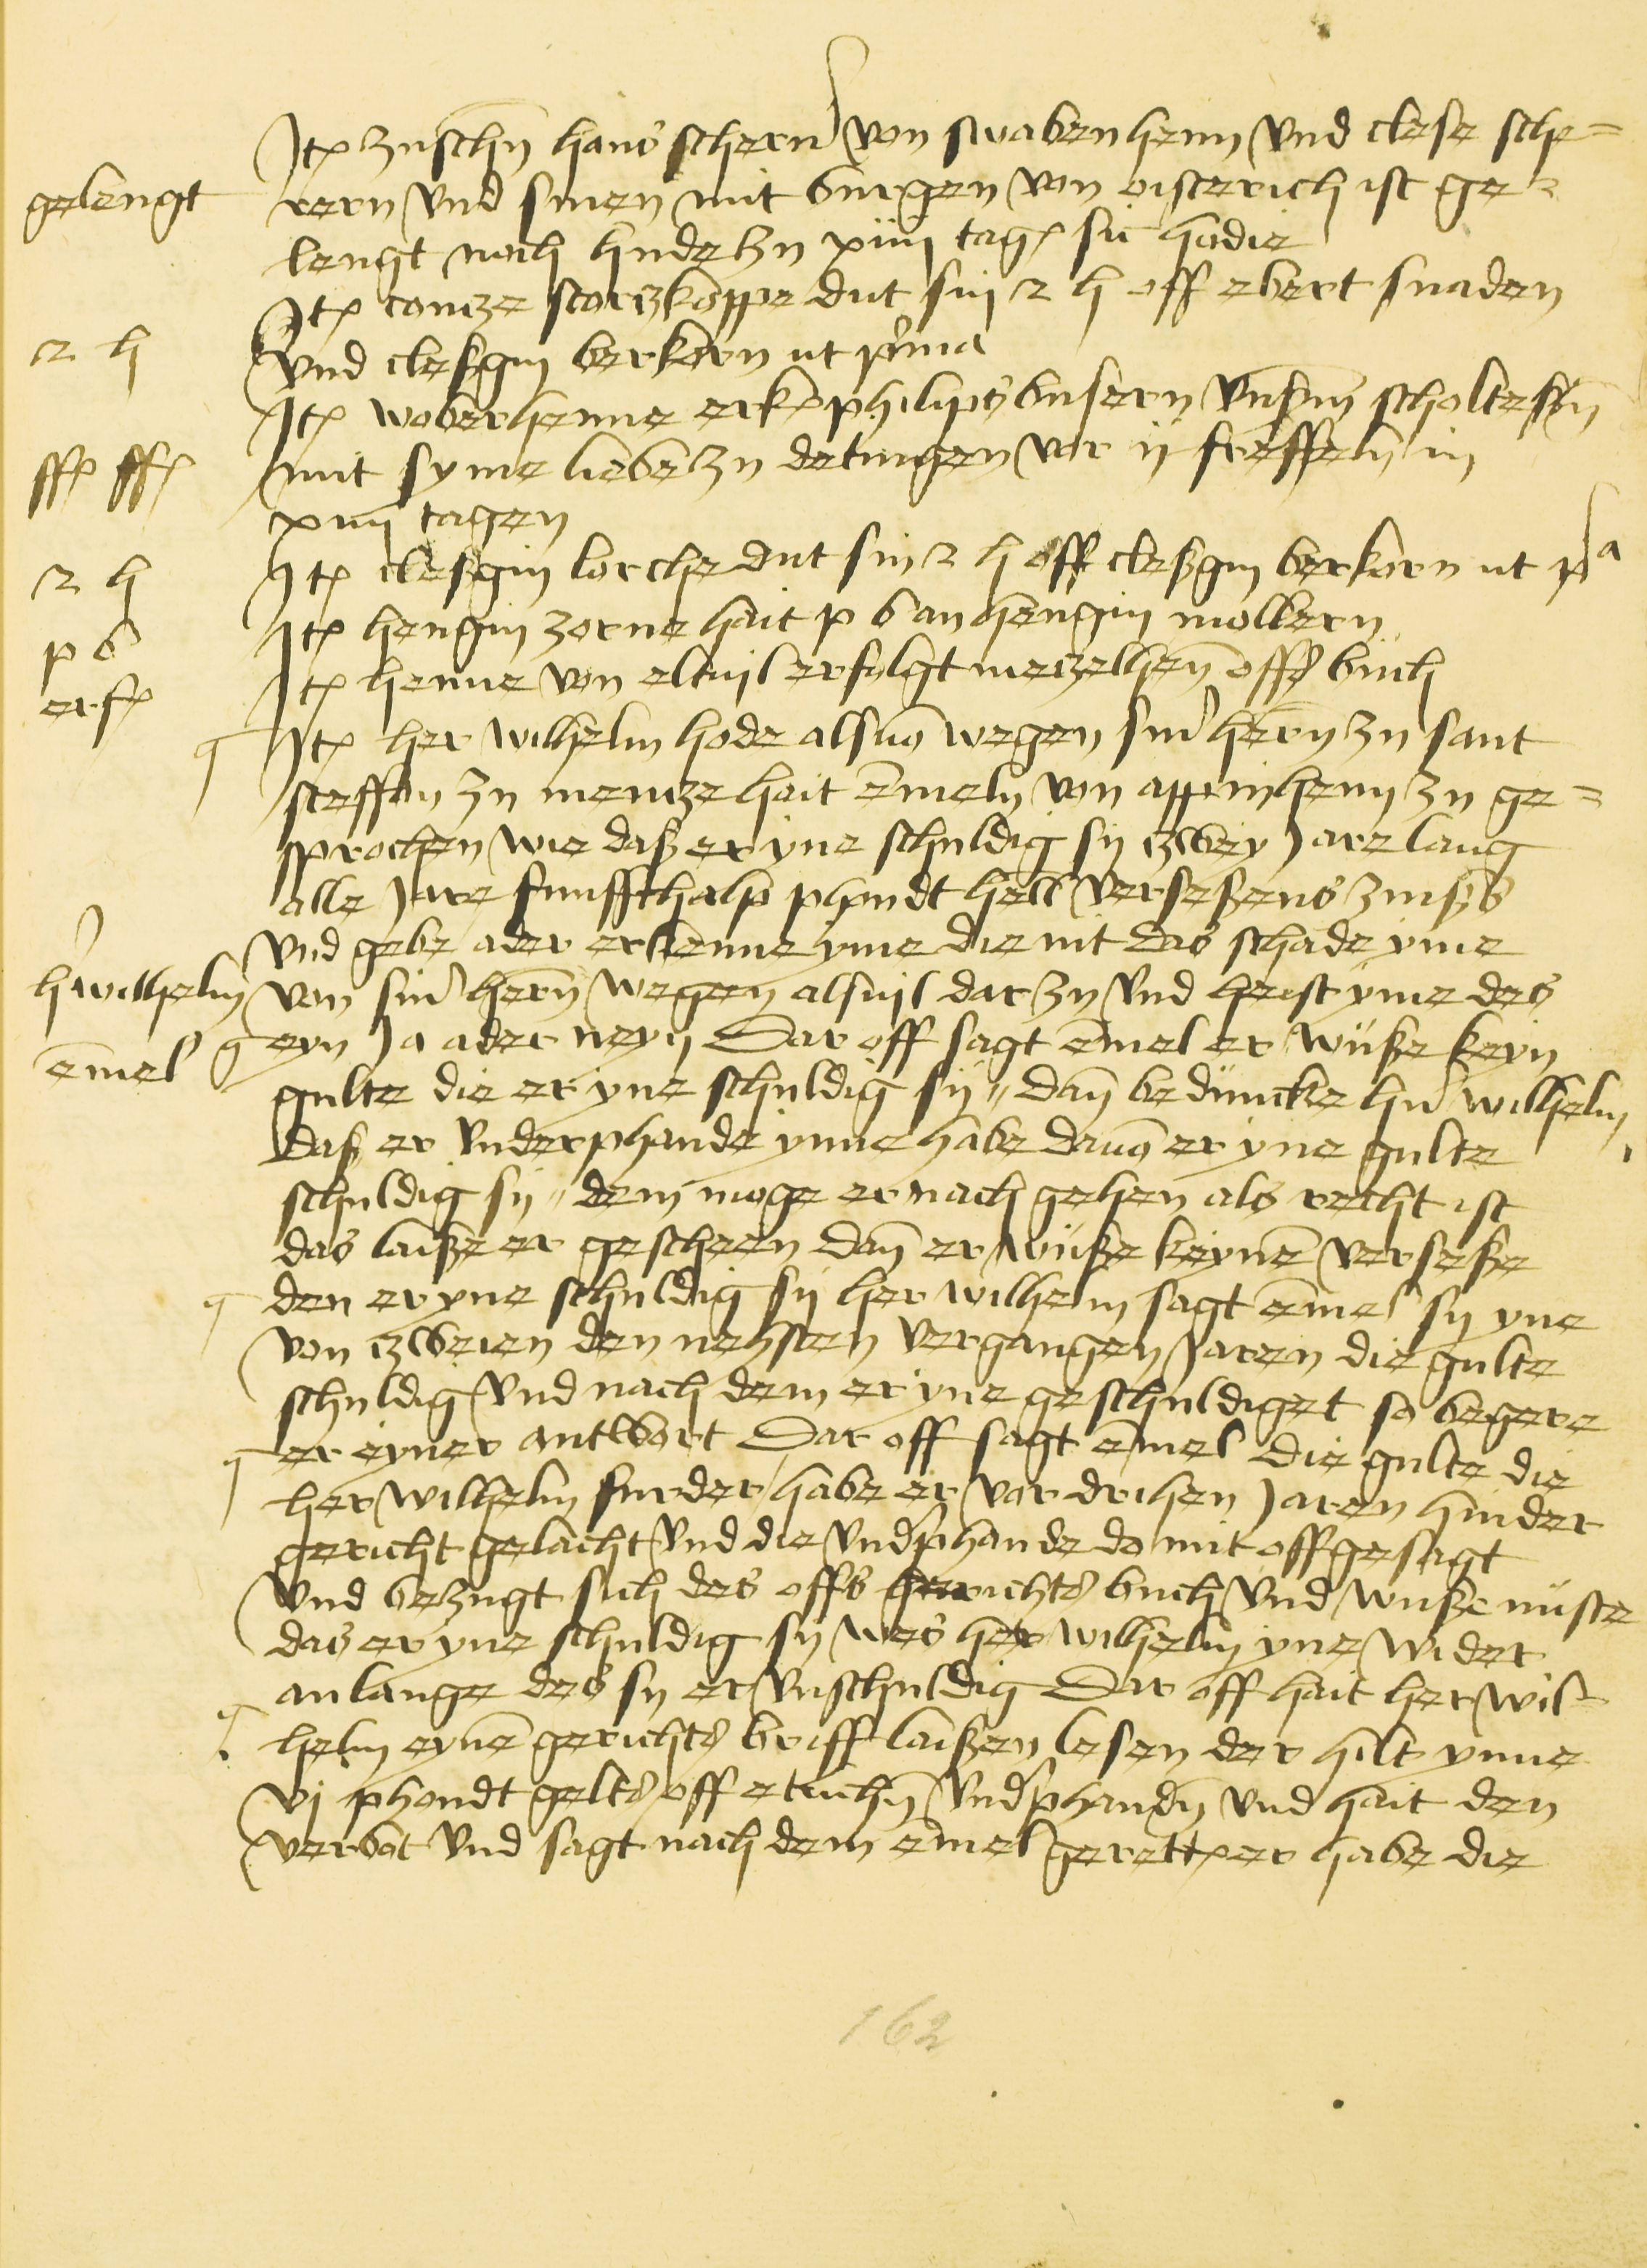 gelengt
Jt(em) zuschn hans scherern von swabenheim vnd clese sche=
rern vnd sinen mit burgen von oisterich ist ge=
lengt noch hudezu xiiij tage sic hodie
2 h
Jt(em) contze storczkoppe dut sin 2 h off ebert snaden
vnd cleßgin berkorn ut p(ri)ma
ff ff
Jt(em) woberhenne erk(ent) philips busern vnßm scholtessen
mit syme lieb zu detingen vor ij freffeln in
xiiij tagen
2 h
Jt(em) cleßgin lorche dut sin 2 h off cleßgin berkorn ut p(rim)a
p b
Jt(em) hengin zorne hait p b an hengin mollern
erf
Jt(em) henne von eltuil erfolgt metzelhen offs buch
Jt(em) her wilhelm hode als von wegen siner hern zu sant
steffan zu mentze hait emeln von appinheim zu ge=
sprochen wie daß er yne schuldig sy zwey jare lang
alle jare funffthalp phundt hell(er) verseßens zinß
vnd gebe ader erkenne yme die nit das schade yme
h(er) wilhelm
von siner hern wegen als vil dar zu vnd heist yme des
emel
eyn ja ader neyn Dar off sagt emel er wuße keyn
gulte die er yne schuldig sy dan beduncke hern wilhelm
daß er vnderphande ynne habe dauon er yne gulte
schuldig sy dem moge er nach gehen als recht ist
das laiße er gescheen dan er wuße keynen verseße
den er yne schuldig sy her wilhelm sagt emel sy yne
von zweien den nehsten vergangen jaren die gulte
schuldig vnd nach dem er yne geschuldiget so begere
er eyner antwort Dar off sagt emel die gulte die
her wilhelm furder habe er vor drihen jaren hinder
gericht gelacht vnd die vnd(er)phande do mit offgesagt
vnd bezugt sich des offs gerichts buch vnd wuße nuste
das er yne schuldig sy wes her wilhelm yne wider
anlange des sy er vnschuldig Dar off hait her wil=
helm eynen gerichts briff laißen lesen der hilt ynne
vj phondt gelts off etlichn vnd(er)phandn vnd hait den
verbot vnd sagt nach dem emel gerett er habe die
162